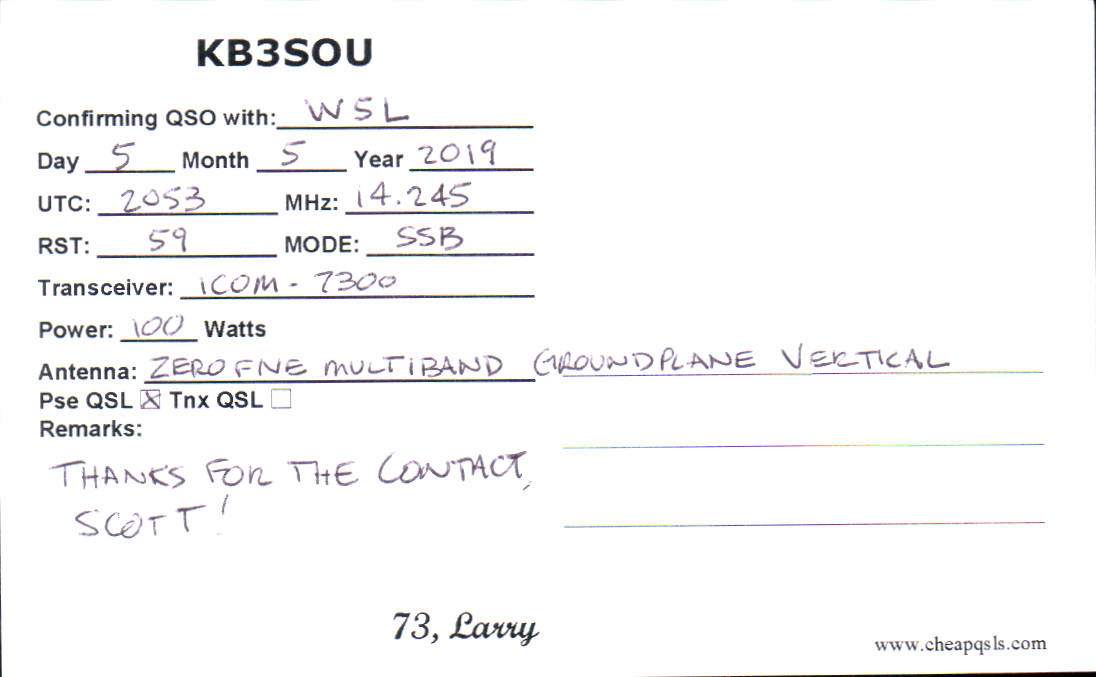 KB3SOU
Confirming QSO with: W5L
Day 5 Month 5 Year 2019
UTC: 2053 MHz: 14.245
RST: 59 MODE: SSB
Transceiver: ICOM - 7300
Power: 100 Watts
Antenna: ZERO FIVE MULTIBAND GROUNDPLANE VERTICAL
Pse QSL ☒ Tnx QSL ☐
Remarks:
THANKS FOR THE CONTACT,
SCOTT!
73, Larry
www.cheapqsls.com